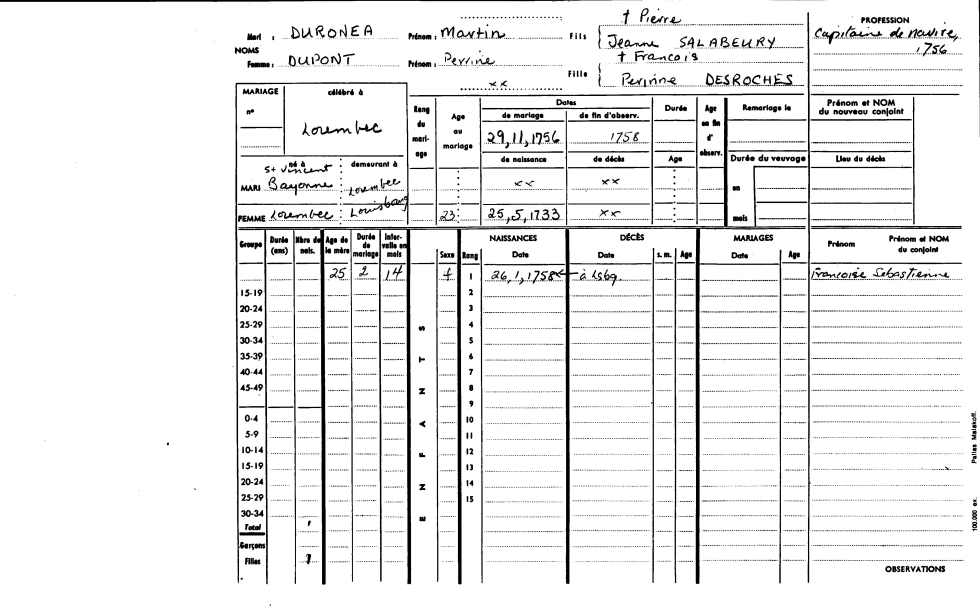 † Pierre
PROFESSION
Mari : DURONEA Prénom : Martin Fils Jeanne SALABEURY Capitaine de navire, 1756
NOMS
Femme : DUPONT Prénom : Perrine Fille † Francois
Perrine DESROCHES
xx
MARIAGE célébré à
n°
Lorembec
Rang du mariage
Age au mariage
Dates
de mariage de fin d'observ.
29,11,1756 1758
Durée
Age en fin d'observ.
Remariage le
Prénom et NOM du nouveau conjoint
né à demeurant à
de naissance de décès Age
Durée du veuvage
Lieu du décès
MARI St Vincent Bayonne Lorembec xx xx
en
FEMME Lorembec Louisbourg 23 25,5,1733 xx
mois
Groupe Durée (ans) Nbre de nais. Age de la mère Durée de mariage Intervalle en mois
ENFANTS
Sexe Rang
NAISSANCES Date
DÉCÈS Date s. m. Age
MARIAGES Date Age
Prénom Prénom et NOM du conjoint
25 2 14 f 1 26,1,1758 à Lsbg. Francoise Sebastienne
15-19 2
20-24 3
25-29 4
30-34 5
35-39 6
40-44 7
45-49 8
9
0-4 10
5-9 11
10-14 12
15-19 13
20-24 14
25-29 15
30-34
Total 1
Garçons
Filles 1
OBSERVATIONS
100.000 ex. Pallas Malakoff.